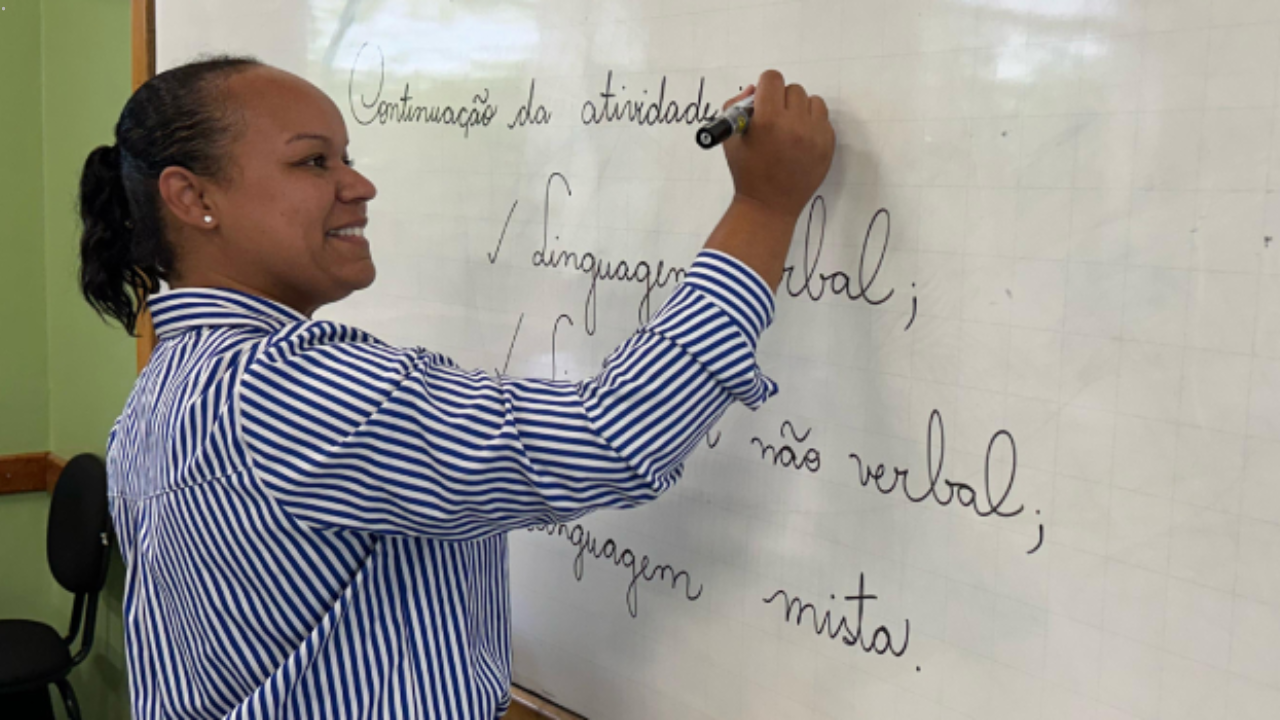 Continuação da atividade
✓ Linguagem verbal;
✓ não verbal;
Linguagem mista.